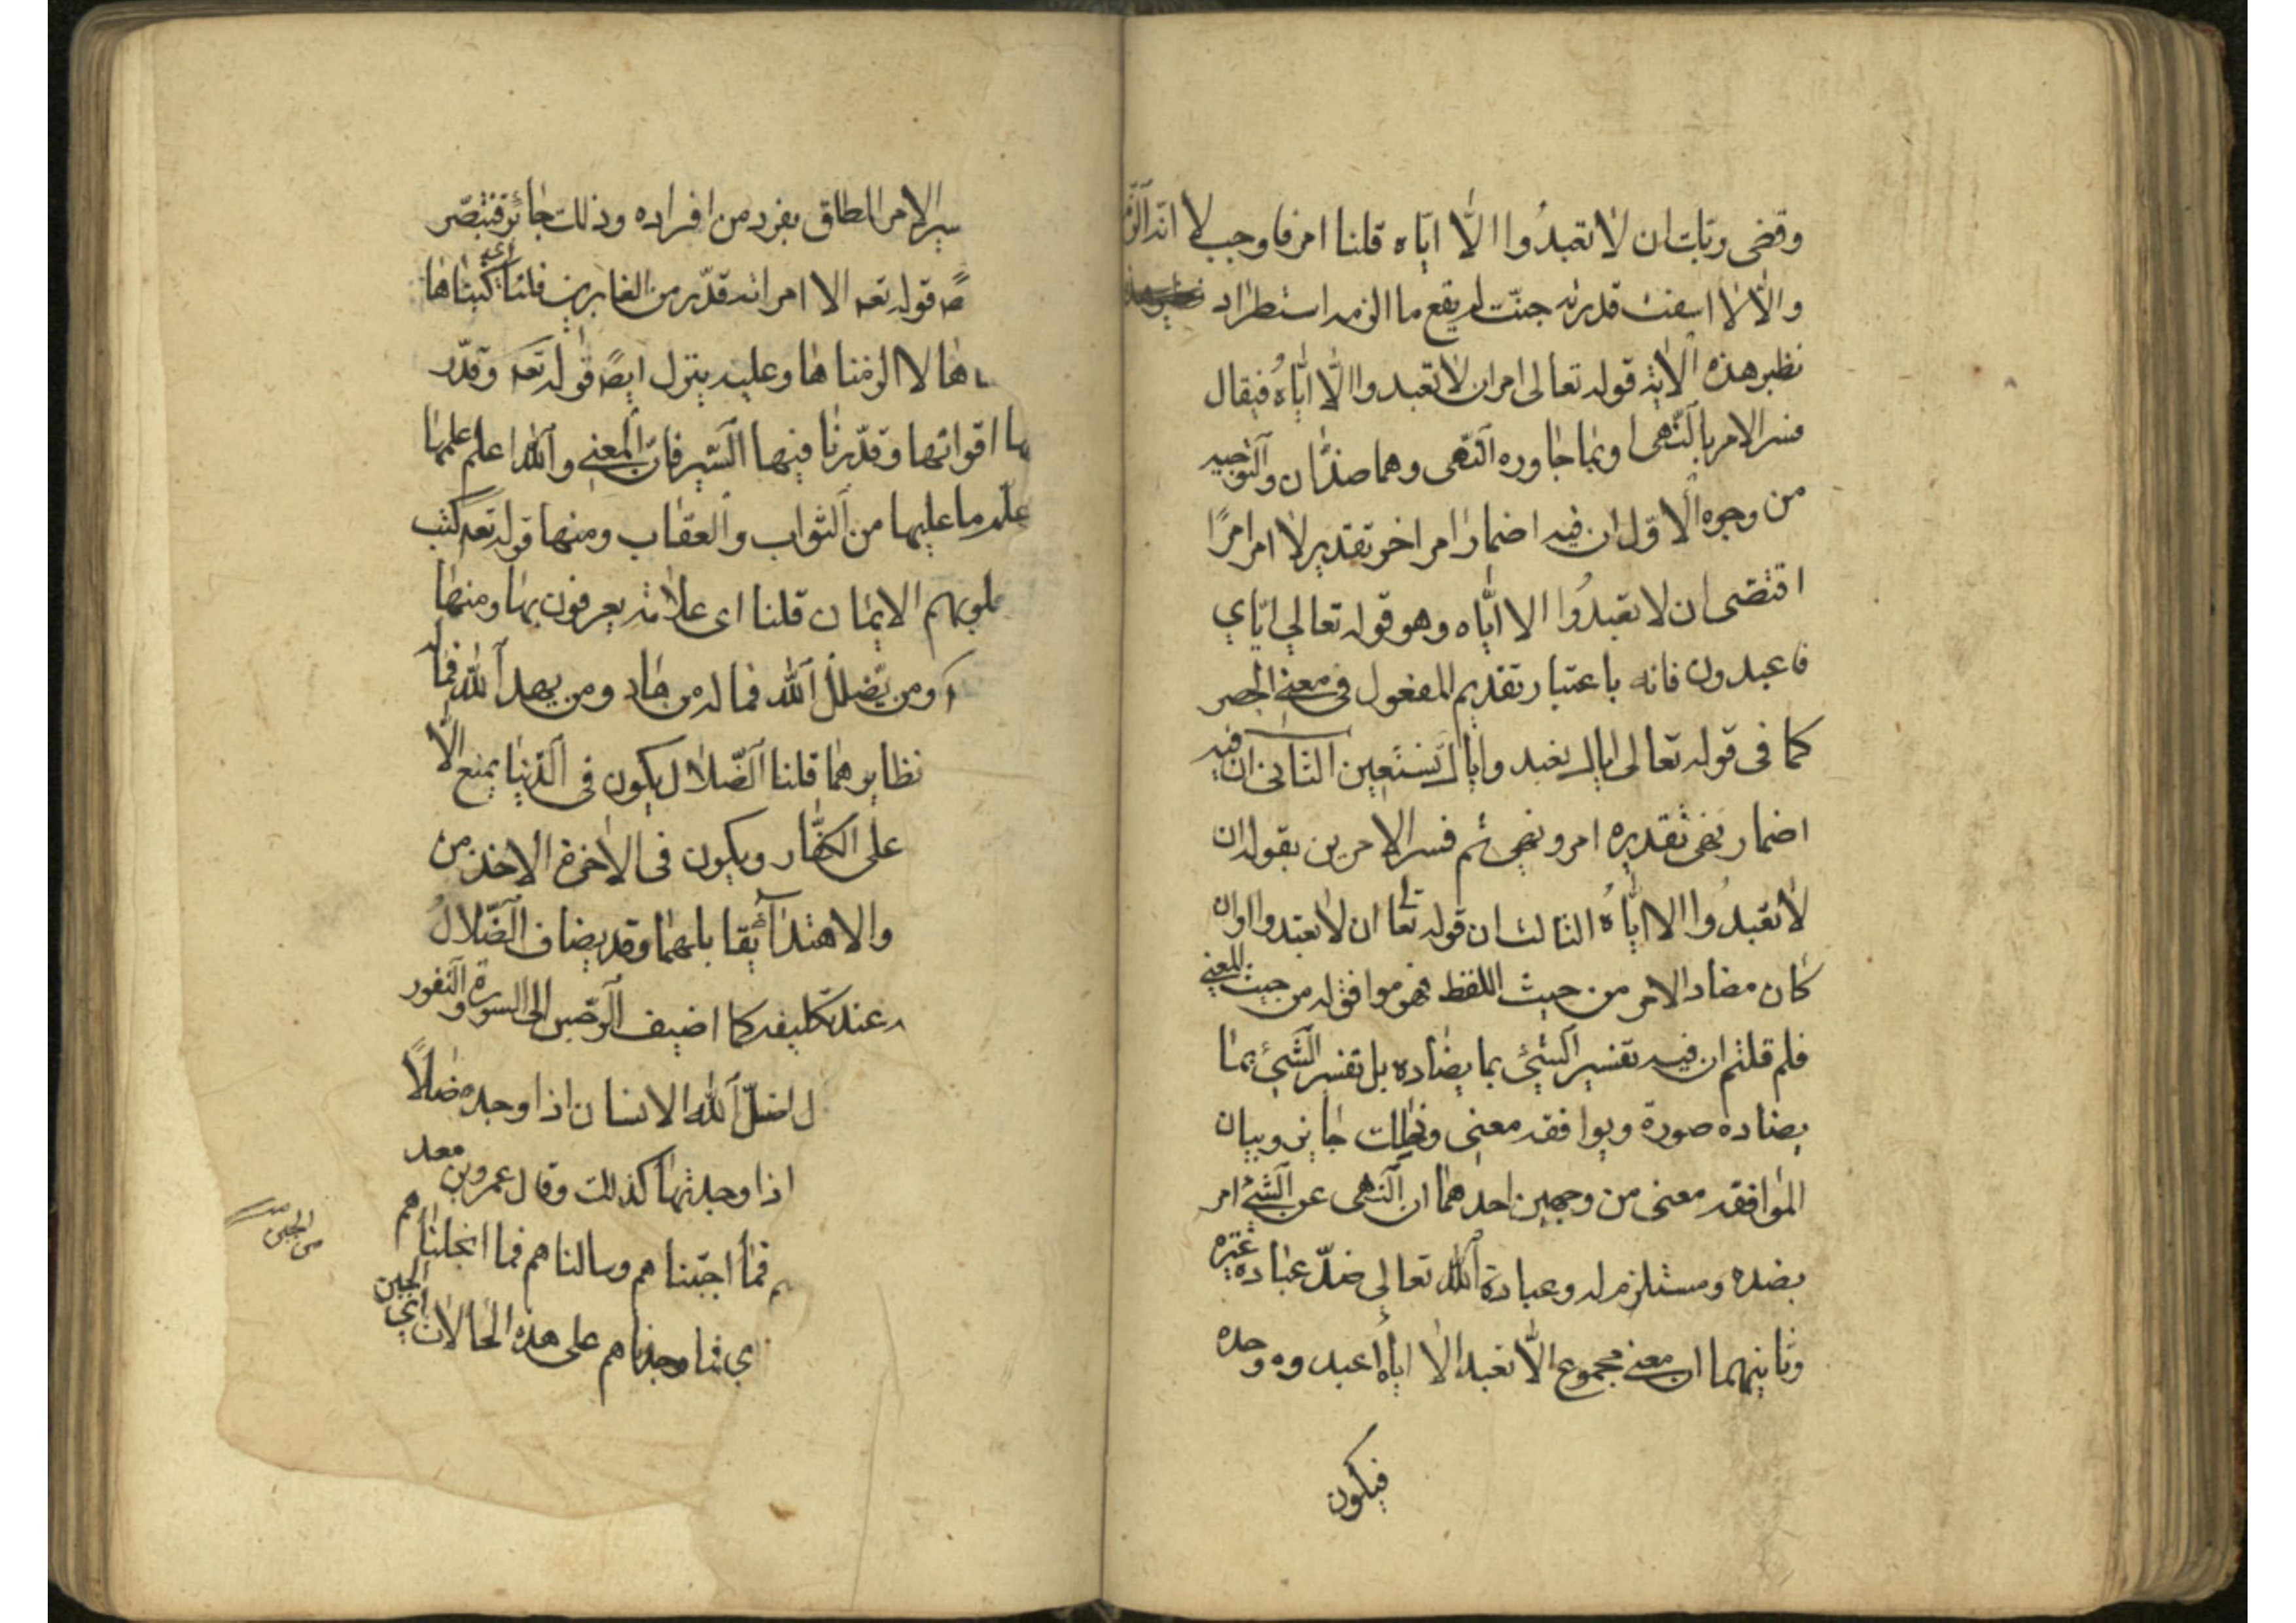 وقضى ربّك ان لا تعبدُوا الّا ايّاه قلنا امر فاوجب لا انه الزم
والّا لا اسفت قدرته جنّت لم يقع ما الزمه استطراد
نظير هذه الاية قوله تعالى امر ان لا تعبدوا الّا ايّاهُ فيقال
فسر الامر بالنّهى وبما جاوره النّهى وهما ضدّان والتوجيه
من وجوه الاوّل ان فيه اضمار امر اخر تقديره لا امر امرًا
اقتضى ان لا تعبدُوا الا ايّاه وهو قوله تعالي ايّاي
فاعبدون فانه باعتبار تقديم المفعول فى معنى الحصر
كما فى قوله تعالى اياك نعبد واياك نستعين الثانى ان فيه
اضمار نهى تقديره امر ونهى ثم فسر الامرين بقوله ان
لا تعبدُوا الا ايّاهُ الثالث ان قوله تعالى ان لا تعبدوا وان
كان مضاد الامر من حيث اللفظ فهو موافق له من حيث المعنى
فلم قلتم ان فيه تفسير الشئ بما يضاده بل تفسير الشئ بما
يضاده صورة ويوافقه معنى وذلك جايز وبيان
الموافقه معنى من وجهين احدهما ان النهى عن الشئ امر
بضده ومستلزم له وعبادة الله تعالي ضدّ عبادة غيره
وثانيهما ان معنى مجموع الّا تعبد الا اياه اعبدوه وحده
فيكون
سير الامر المطلق بفرد من افراده وذلك جائز فتبصّر
قوله تعه الا امراته قدّر من الغابرين قلنا اي كتبناها
ها لا الزمناها وعليه يتزل ايضً قوله تعه وقدّر
ها اقواتها وقدّرنا فيها السّير فانّ المعنى والله اعلم علمها
علم ما عليها من الثواب والعقاب ومنها قوله تعه كتب
قلوبهم الايمان قلنا اى علامة يعرفون بها ومنها
ومن يضلل الله فما له من هاد ومن يهد الله فما له
نظايرهما قلنا الضّلال يكون فى الدّنيا يمنع الّا
على الكفّار ويكون فى الاخرة الاخذ من
والاهتداء يقابلهما وقد يضاف الضّلال
عند تكليفه كما اضيف الرّجس الى السورة والنفور
ل اضلّ الله الانسان اذا وجده ضالاً
اذا وجدتها كذلك وقال عمرو بن معد
هم فما اجبناهم وسالناهم فما ابخلناهم
اي فما وجدناهم على هذه الحالات اي
الجبن
من الجبن